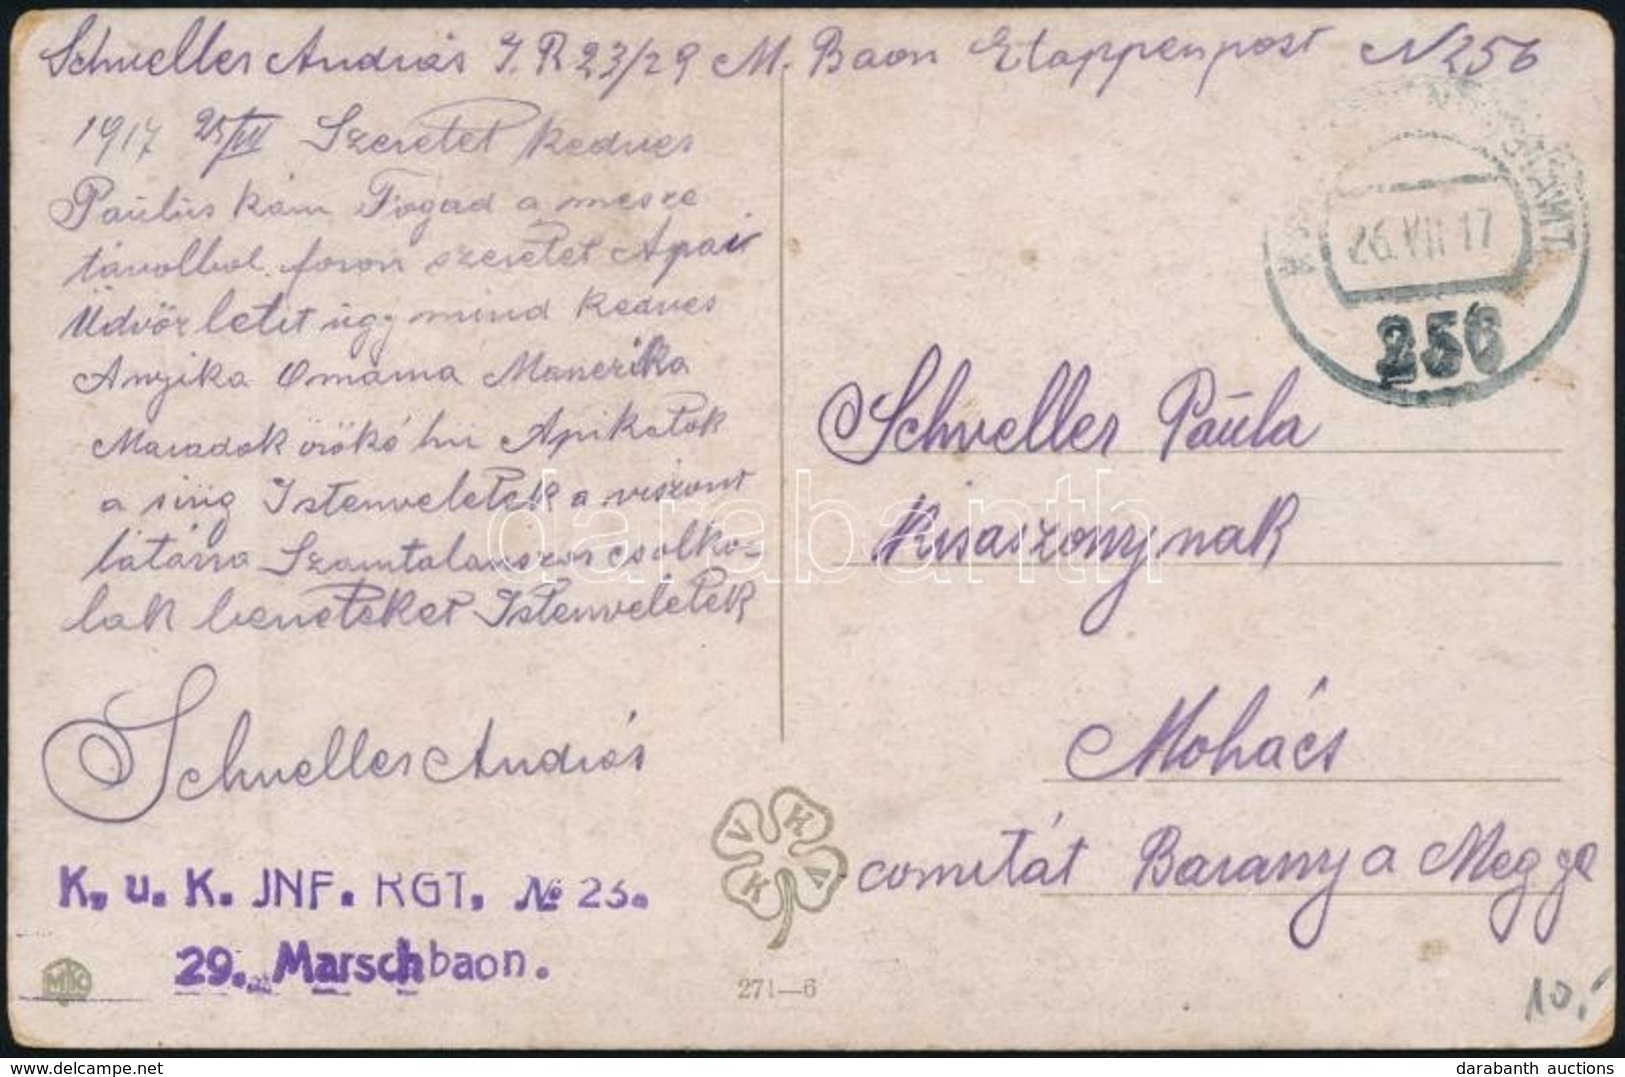 Schneller András I. R 23/29 M. Baon Etappenpost N 256
1917 25/VII Szeretet kedves
Paulus kám Fogad a messze
távolbol foron szeretet Apai
Üdvöz letit ugy mind kedves
Anyika Omama Manerika
Maradok örökö hü Apikatok
a sirig Istenveletek a viszont
látásra Szamtalanszor csolko-
lak beneteket Istenveletek
Schneller András
K. u. K. JNF. RGT. № 23.
29. Marschbaon.
MK
271—6
V H V K
26. VII 17
256
Schneller Paŭla
kisaszonynak
Mohács
comitát Baranya Megye
10.-
darabanth
delcampe.net
darabanth auctions